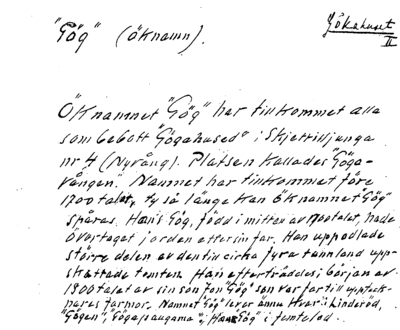 "Gög" (Öknamn).
Gökahuset
II
Öknamnet "Gög" har tillkommet alla
som bebott "Gögahused" i Skjettilljunga
nr 4 (Nyvång). Platsen kallades "Göga-
vången". Namnet har tillkommet före
1700 talet, ty så länge kan öknamnet "Gög"
spåras. Hans Gög, född i mitten av 1700talet, hade
övertaget jorden efter sin far. Han uppodlade
större delen av den till cirka fyra tunnland upp-
skattade tomten. Han efterträddes i början av
1800 talet av sin son Jön "Gög" son var far till
nares farmor. Namnet "Gög" lever ännu kvar i Linderöd,
"Gögen", "Hans Gög" i